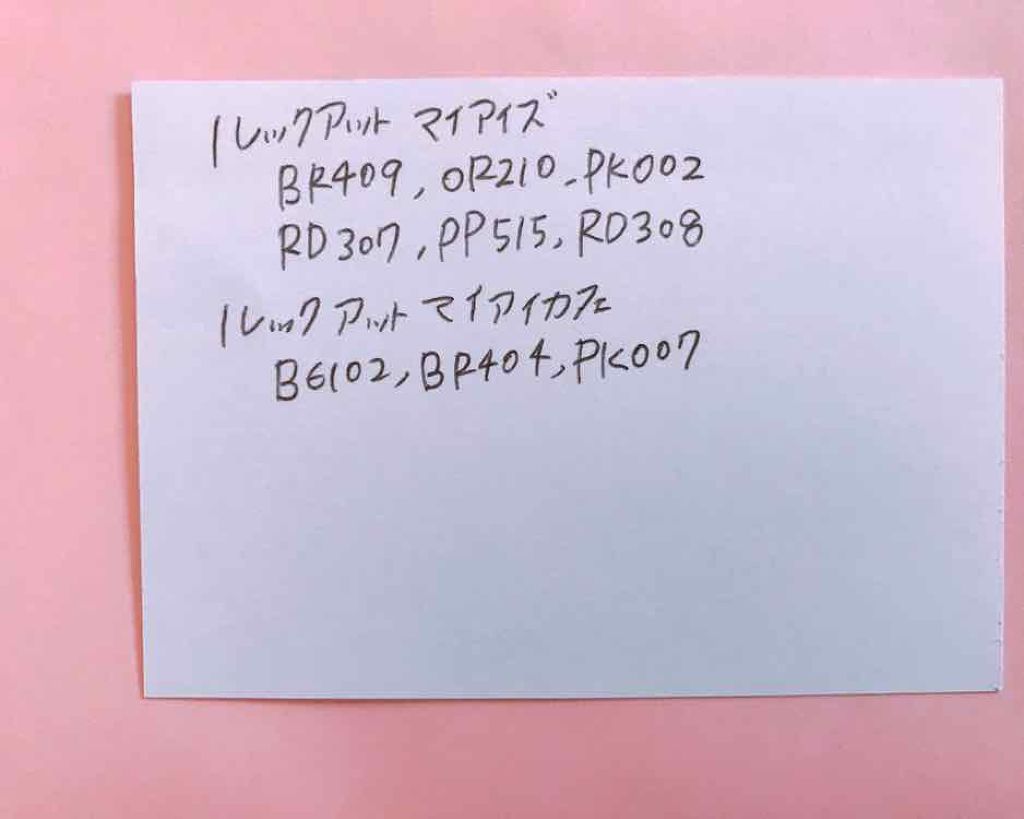 ルックアット マイアイズ
BR409, OR210, PK002
RD307, PP515, RD308
ルックアット マイアイカフェ
BE102, BR404, PK007